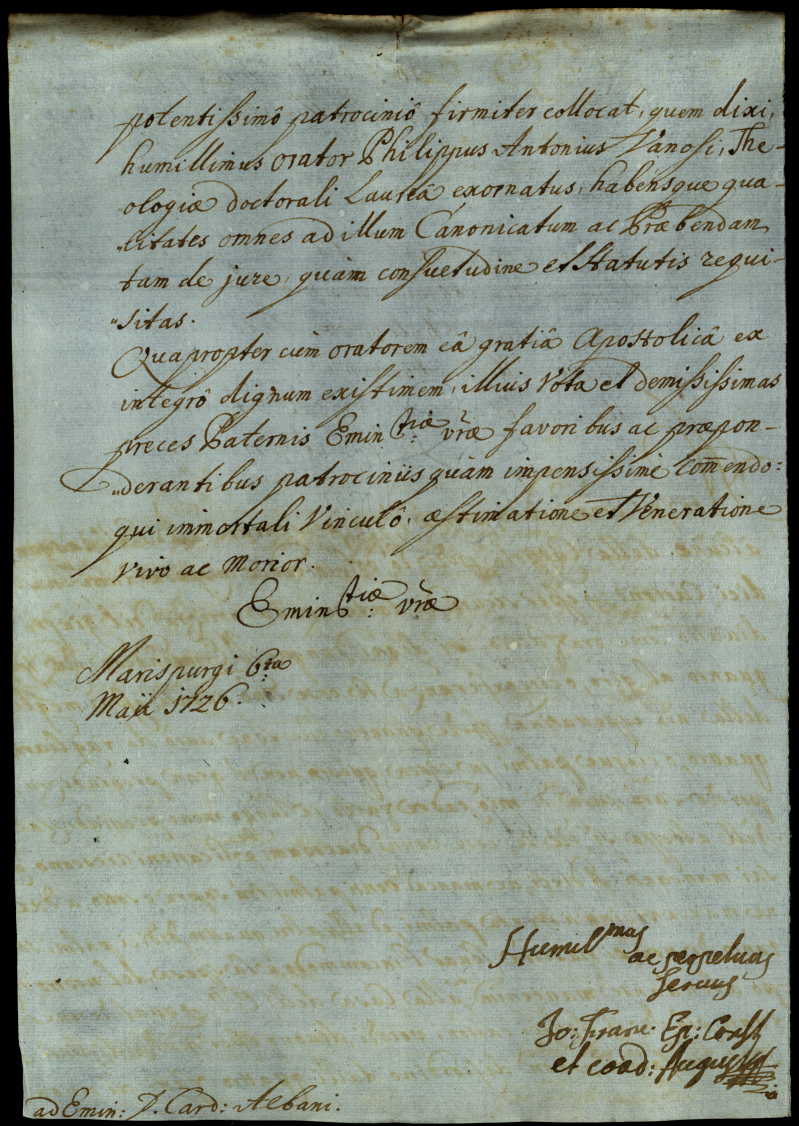 potentissimô patrociniô firmiter collocat, quem dixi,
humillimus orator Philippus Antonius Vanossi, The-
ologiæ doctorali Laureâ exornatus, habensque qua-
„litates omnes ad illum Canonicatum ac Præbendam
tam de jure, quàm consuetudine et statutis requi-
„sitas.
Quapropter cùm oratorem eâ gratiâ Apostolicâ ex
integrô dignum existimem, illius vota et demississimas
preces Paternis Emin:tiæ vræ favoribus ac præpon-
„derantibus patrociniis quàm impensissimè com̄endo:
qui immortali Vinculô, æstimatione et Veneratione
vivo ac Morior.
Emin:tiæ vræ
Marispurgi 6ta
Maii 1726.
Humilmus
ac perpetuus
servus
Jo: Franc: Ep: Const
et coad: August
ad Emin: D. Card: Albani.